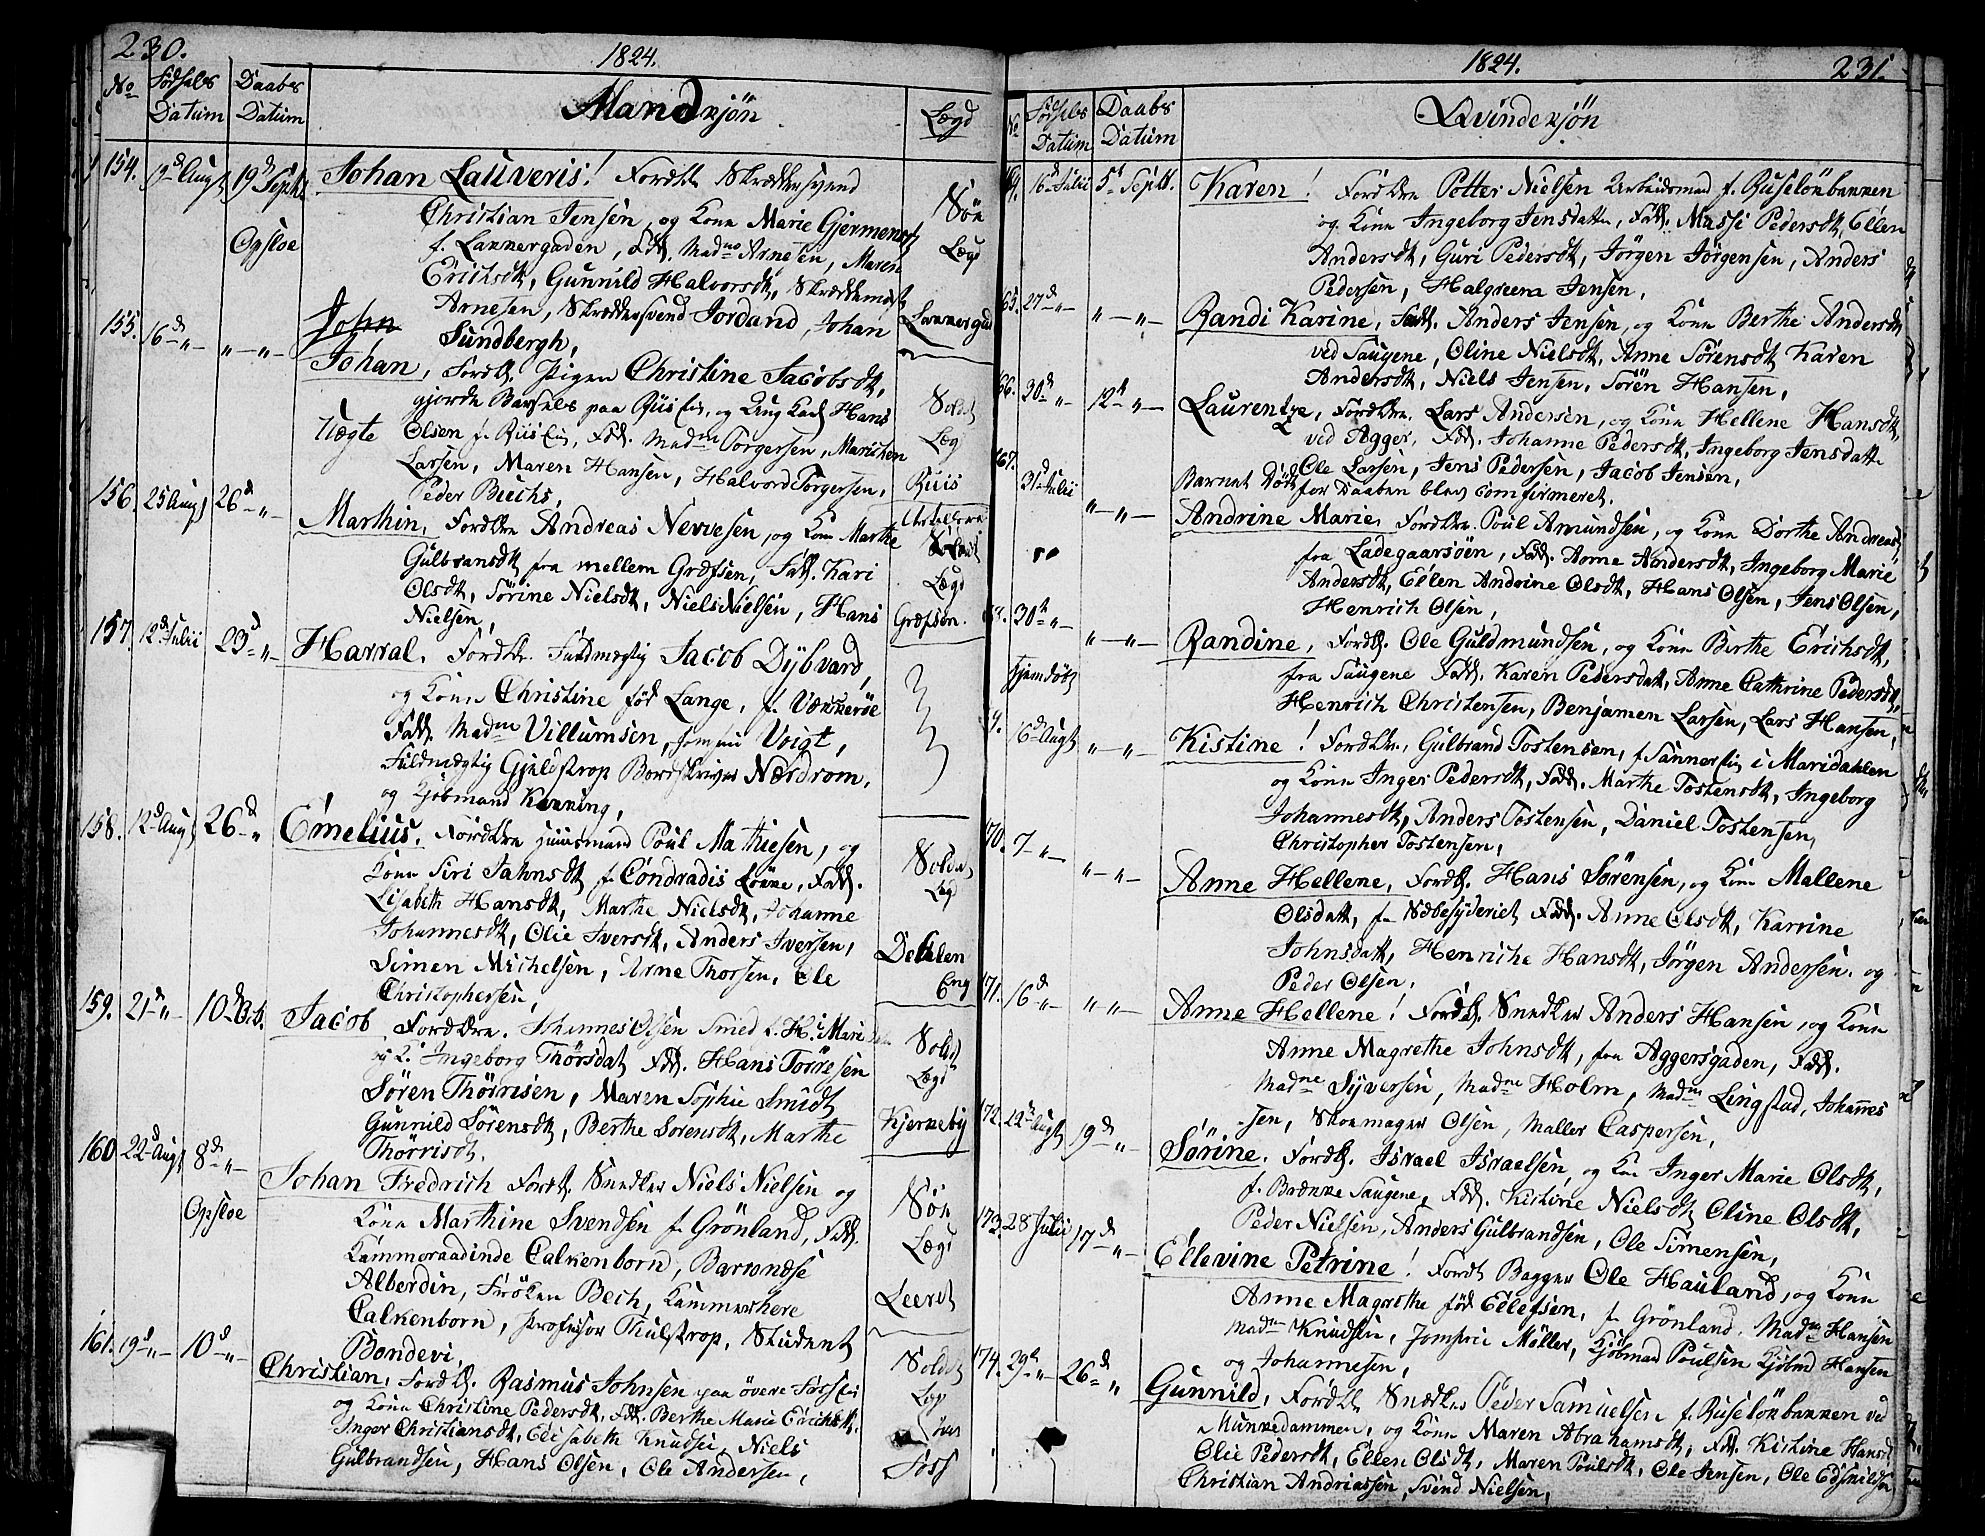 230.
1824.
No
Fødsels Datum
Daabs Datum
Mandkjön
Lægd
154.
19d Sept.
Opsloe
Johan Lauveris! Forældre Skrædersvend
Christian Jensen, og Kone Marie Gjermensd
f. Lakkergaden, Fadd. Madme Arnesen, Maren
Erichsdt, Gunnild Halvorsdt, Skræddermest.
Arnesen, Skræddersvend Jordand, Johan
Sundbergh,
Søe Lægd
Lakkergad
155.
16d "
" "
John
Johan, Foreldr. Pigen Christine Jacobsdt,
gjorde Barsels paa Riis Ei, og Ung Karl Hans
Uægte
Olsen f. Riis Ei, Fadd. Madme Torgersen, Marichen
Larsen, Maren Hansen, Halvord Torgersen,
Peder Buchs,
Soldt Læg
Riis
156.
25 Augt
26d "
Marthin, Forældre Andreas Nevvesen, og Kone Marthe
Gulbransdt fra mellem Græfsen, Fadd. Kari
Olsdt, Sørine Nielsdt, Niels Nielsen, Hans
Nielsen,
Soldt
Lægd
Græfsen.
157.
12d Julii
23d "
Harral. Forældre. Fuldmægtig Jacob Dybvard,
og Kone Christine fød Lange, f. Vækkerøe
Fadd. Madme Villumsen, Voigt,
Fuldmægtig Gjeldstrop Bordskriver Nærdrom,
og Kjøbmand Kanning,
158.
12d Augt
26d "
Emelius. Forældre Huusmand Poul Mathiesen, og
Kone Siri Jahnsdt f. Condradis Løkke, Fadd.
Lisabeth Hansdt, Marthe Nielsdt, Johanne
Johannesdt, Olie Iversdt, Anders Iversen,
Simen Michelsen, Arne Thorsen, Ole
Christophersen,
Soldat Lægd
Delelen
Eng
159.
21d "
10d Octb.
Jacob Forældre. Johannes Olsen Smed
og K. Ingeborg Thørsdat Fadd. Hans Törresen
Søren Thørrisen, Maren Sophie Smidt
Gunnild Sørensdt, Berthe Sorensdt, Marthe
Thørrisdt.
Soldt
Lægd
Kjerneby
160
22d Augt
8d "
Opsloe
Johan Fredrich Forældr. Snedker Niels Nielsen og
Kone Marthine Svendsen f. Grönland, Fadd.
Kammeraadinde Calkenborn, Barronesse
Alberdin, Frøken Bech, Kammerhere
Calkenborn, Professor Thulstrop, Student
Bondevi,
Søe
Lægd
Leeret
161.
19d "
10d "
Christian, Forældr. Rasmus Johnsen paa övere Foss Ei
og Kone Christine Pedersdt, Fadd. Berthe Marie Erichsdt
Inger Christiansdt, Elisabeth Knudsen, Niels
Gulbrandsen, Hans Olsen, Ole Andersen,
Soldt
Læg
över
Foss
1824.
231.
No
Fødsels Datum
Daabs Datum
Qvindekjön
16d Julii
5d Septb.
Karen! Forældre Potter Nielsen Arbeidsmand f. Ruseløkbakken
og Kone Ingeborg Jensdatter, Fadd. Massi Pedersdt, Ellen
Andersdt, Guri Pedersdt, Jørgen Jørgensen, Anders
Pedersen, Halgreem Jensen,
65.
27d "
" "
Randi Karine, Fadd. Anders Jensen, og Kone Berthe Andersdt
ved Saugene, Oline Nielsdt, Anne Sørensdt Karen
Andersdt, Niels Jensen, Sørën Hansen,
66.
30d "
12d "
Laurentze, Forældre. Lars Andersen, og Kone Hellene Hansdt,
ved Agger, Fadd. Johanne Pedersdt, Ingeborg Jensdatter
Ole Larsen, Jens Pedersen, Jacob Jensen,
Barnet døde før Daaben blev comfirmeret.
167.
31d Julii
" "
Andrine Marie, Forældre. Poul Amundsen, og Kone Dorthe Andreasdt
fra Ladegaarsøen, Fadd. Anne Andersdt, Ingeborg Marie
Andersdt, Ellen Andrine Olsdt, Hans Olsen, Jens Olsen,
Henrich Olsen,
30d "
" "
Hjemdøbt
Randine, Forældr. Ole Guldmundsen, og Kone Berthe Erichsdt,
fra Saugene Fadd. Karen Pedersdatt, Anne Cathrine Pedersdt,
Henrich Christensen, Benjamen Larsen, Lars Hansen,
16d Augt
" "
Kistine! Forældre, Gulbrand Tostensen, f. Sannersti i Maridahlen
og Kone Inger Pedersdt, Fadd. Marthe Tostensdt, Ingeborg
Johannesdt, Anders Tostensen, Daniel Tostensen,
Christopher Tostensen,
170.
7 "
" "
Anne Hellene, Forældr. Hans Sørensen, og Kone Mallene
Olsdatt, f. Sæbesyderiet Fadd. Anne Olsdt, Karrine
Johnsdatt, Henriche Hansdt, Jørgen Andersen. og
Peder Olsen,
171.
16d "
" "
Anne Hellene! Forældr. Snedker Anders Hansen, og Kone
Anne Magrethe Johnsdt, fra Aggersgaden, Fadd.
Madme Syversen, Madme Holm, Madme Lingstad, Johannes
sen, Skomager Olsen, Maller Caspersen,
172.
12d Augt
19d "
Sørine. Forældr. Israel Israelsen, og Kone Inger Marie Olsdt,
f. Brække Saugene, Fadd. Kistine Nielsdt Oline Olsdt,
Peder Nielsen, Anders Gulbrandsen, Ole Simensen,
173.
28 Julii
17d "
Ellevine Petrine! Forældr Bagger Ole Hauland, og Kone
Anne Magrethe fød Ellefsen, f. Grönland. Madme Hansen
Madme Knudsen, Jomfrue Møller, Kjøbmad Poulsen Kjøbmd Hansen
og Johannesen,
174.
29d "
26d "
Gunnild, Forældr Snedker Peder Samuelsen f. Ruseløkbakken ved
Munkedammen, og Kone Maren Abrahamsdt, Fadd. Kistine Hansdt
Olie Pedersdt, Ellen Olsdt, Maren Poulsdt, Ole Jensen, Ole Edsmildsen
Christian Andriassen, Svend Nielsen,